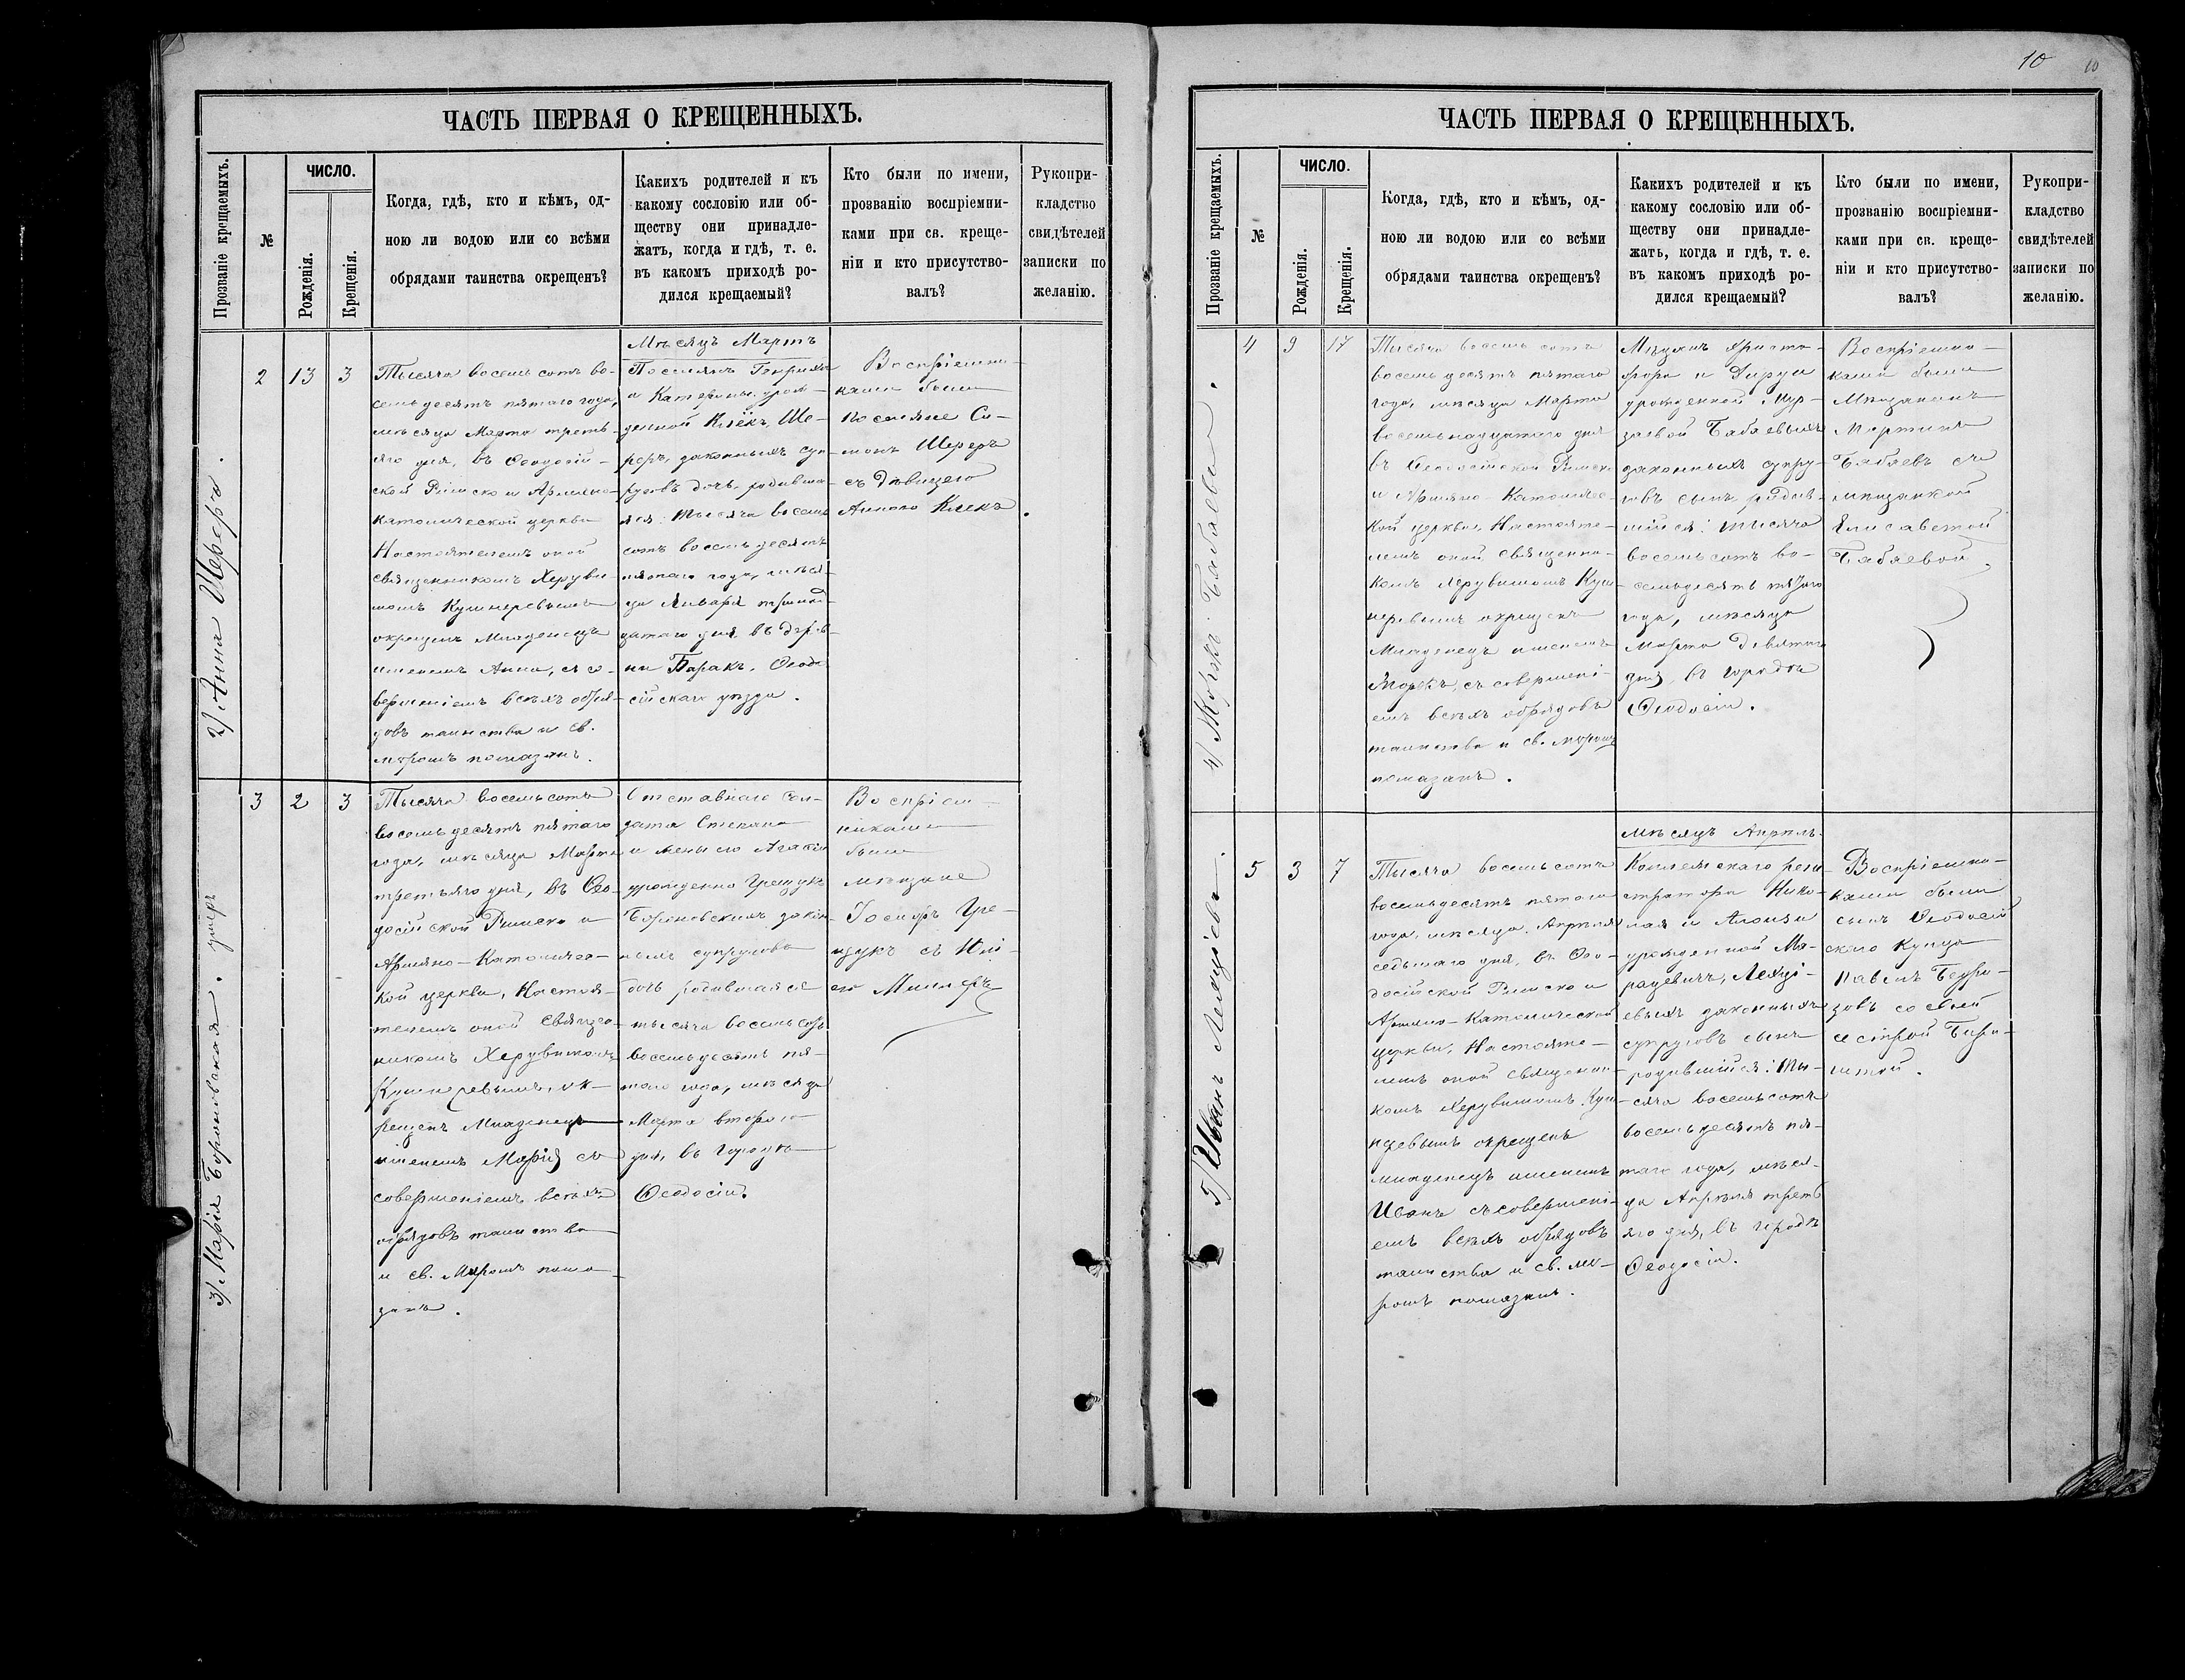 ЧАСТЬ ПЕРВАЯ О КРЕЩЕННЫХЪ.
Прозваніе крещаемыхъ.
№
ЧИСЛО.
Рожденія.
Крещенія.
Когда, гдѣ, кто и кѣмъ, од-
ною ли водою или со всѣми
обрядами таинства окрещенъ?
Какихъ родителей и къ
какому сословію или об-
ществу они принадле-
жатъ, когда и гдѣ, т. е.
въ какомъ приходѣ ро-
дился крещаемый?
Кто были по имени,
прозванію воспріемни-
ками при св. креще-
ніи и кто присутство-
валъ?
Рукопри-
кладство
свидѣтелей
записки по
желанію.
Мѣсяцъ Мартъ
2) Анна Шереръ.
2
13
3
Тысяча восемь сотъ во-
семьдесятъ пятаго года,
мѣсяца Марта треть-
яго дня, въ Ѳеодосій-
ской Римско и Армяно-
католической церкви
Настоятелемъ оной
священникомъ Херуви-
момъ Кушнеревымъ
окрещенъ Младенецъ
именемъ Анна, съ со-
вершеніемъ всѣхъ обря-
довъ таинства и св.
мѵромъ помазанъ.
Поселянъ
и Катерины, урож-
денной Клекъ, Ше-
реръ, законныхъ суп-
руговъ дочь, родивша-
яся: тысяча восемь
сотъ восемьдесятъ
пятаго года, мѣся-
ца Января тринад-
цатаго дня, въ дерев-
ни Баракъ, Ѳеодо-
сійскаго уѣзда.
Воспріемни-
ками были
поселяне Си-
монъ Шереръ
съ дѣвицею
Анною Клекъ.
3) Марія Бороновская. умеръ
3
2
3
Тысяча восемьсотъ
восемьдесятъ пятаго
года, мѣсяца Марта
третьяго дня, въ Ѳео-
досійской Римско и
Армяно-Католичес-
кой церкви, Настоя-
телемъ оной Священ-
никомъ Херувимомъ
Кушнеревымъ, ок-
рещенъ Младенецъ
именемъ Марія съ
совершеніемъ всѣхъ
обрядовъ таинства
и св. Мѵромъ пома-
занъ.
Отставнаго сол-
дата Степана
и жены его
урожденно Грещукъ
Бороновскихъ закон-
ныхъ супруговъ
дочь родившаяся
тысяча восемь сотъ
восемьдесятъ пя-
таго года, мѣсяца
Марта второго
дня, въ городѣ
Ѳеодосіи.
Воспріем-
никами
были
мѣщане
Іосифъ Гре-
щукъ съ
Миллеръ
10
10
ЧАСТЬ ПЕРВАЯ О КРЕЩЕННЫХЪ.
Прозваніе крещаемыхъ.
№
ЧИСЛО.
Рожденія.
Крещенія.
Когда, гдѣ, кто и кѣмъ, од-
ною ли водою или со всѣми
обрядами таинства окрещенъ?
Какихъ родителей и къ
какому сословію или об-
ществу они принадле-
жатъ, когда и гдѣ, т. е.
въ какомъ приходѣ ро-
дился крещаемый?
Кто были по имени,
прозванію воспріемни-
ками при св. креще-
ніи и кто присутство-
валъ?
Рукопри-
кладство
свидѣтелей
записки по
желанію.
4
9
17
Тысяча восемь сотъ
восемьдесятъ пятаго
года, мѣсяца Марта
дня
въ Ѳеодосійской Римско
и Армяно-Католичес-
кой церкви, Настояте-
лемъ оной священни-
комъ Херувимомъ Куш-
неревымъ окрещенъ
Младенецъ именемъ
съ совершені-
емъ всѣхъ обрядовъ
таинства и св. мѵромъ
помазанъ.
Мѣщанъ Христо-
фора и
урожденной Мур-
заевой Бабаевыхъ
законныхъ супру-
говъ сынъ родив-
шійся: тысяча
восемьсотъ во-
семьдесятъ пятаго
года, мѣсяца
Марта девятаго
дня, въ городѣ
Ѳеодосіи.
Воспріемни-
ками были
Мѣщанинъ
Мартинъ
Бабаевъ съ
мѣщанкой
Елисаветой
Бабаевой.
Мѣсяцъ Апрѣль.
5
3
7
Тысяча восемьсотъ
восемьдесятъ пятаго
года, мѣсяца Апрѣля
седьмаго дня, въ Ѳео-
досійской Римско и
Армяно-Католической
церкви, Настояте-
лемъ оной священни-
комъ Херувимомъ Куш-
неревымъ окрещенъ
младенецъ именемъ
Иванъ съ совершені-
емъ всѣхъ обрядовъ
таинства и св. мѵ-
ромъ помазанъ.
Коллежскаго реги-
стратора Нико-
лая и
урожденной Ма-
рацевичъ,
законныхъ
супруговъ сынъ
родившійся: ты-
сяча восемьсотъ
восемьдесятъ пя-
таго года, мѣся-
ца Апрѣля треть-
яго дня, въ городѣ
Ѳеодосіи.
Воспріемни-
ками были
сынъ Ѳеодосій-
скаго Купца
Павелъ
со своей
сестрой